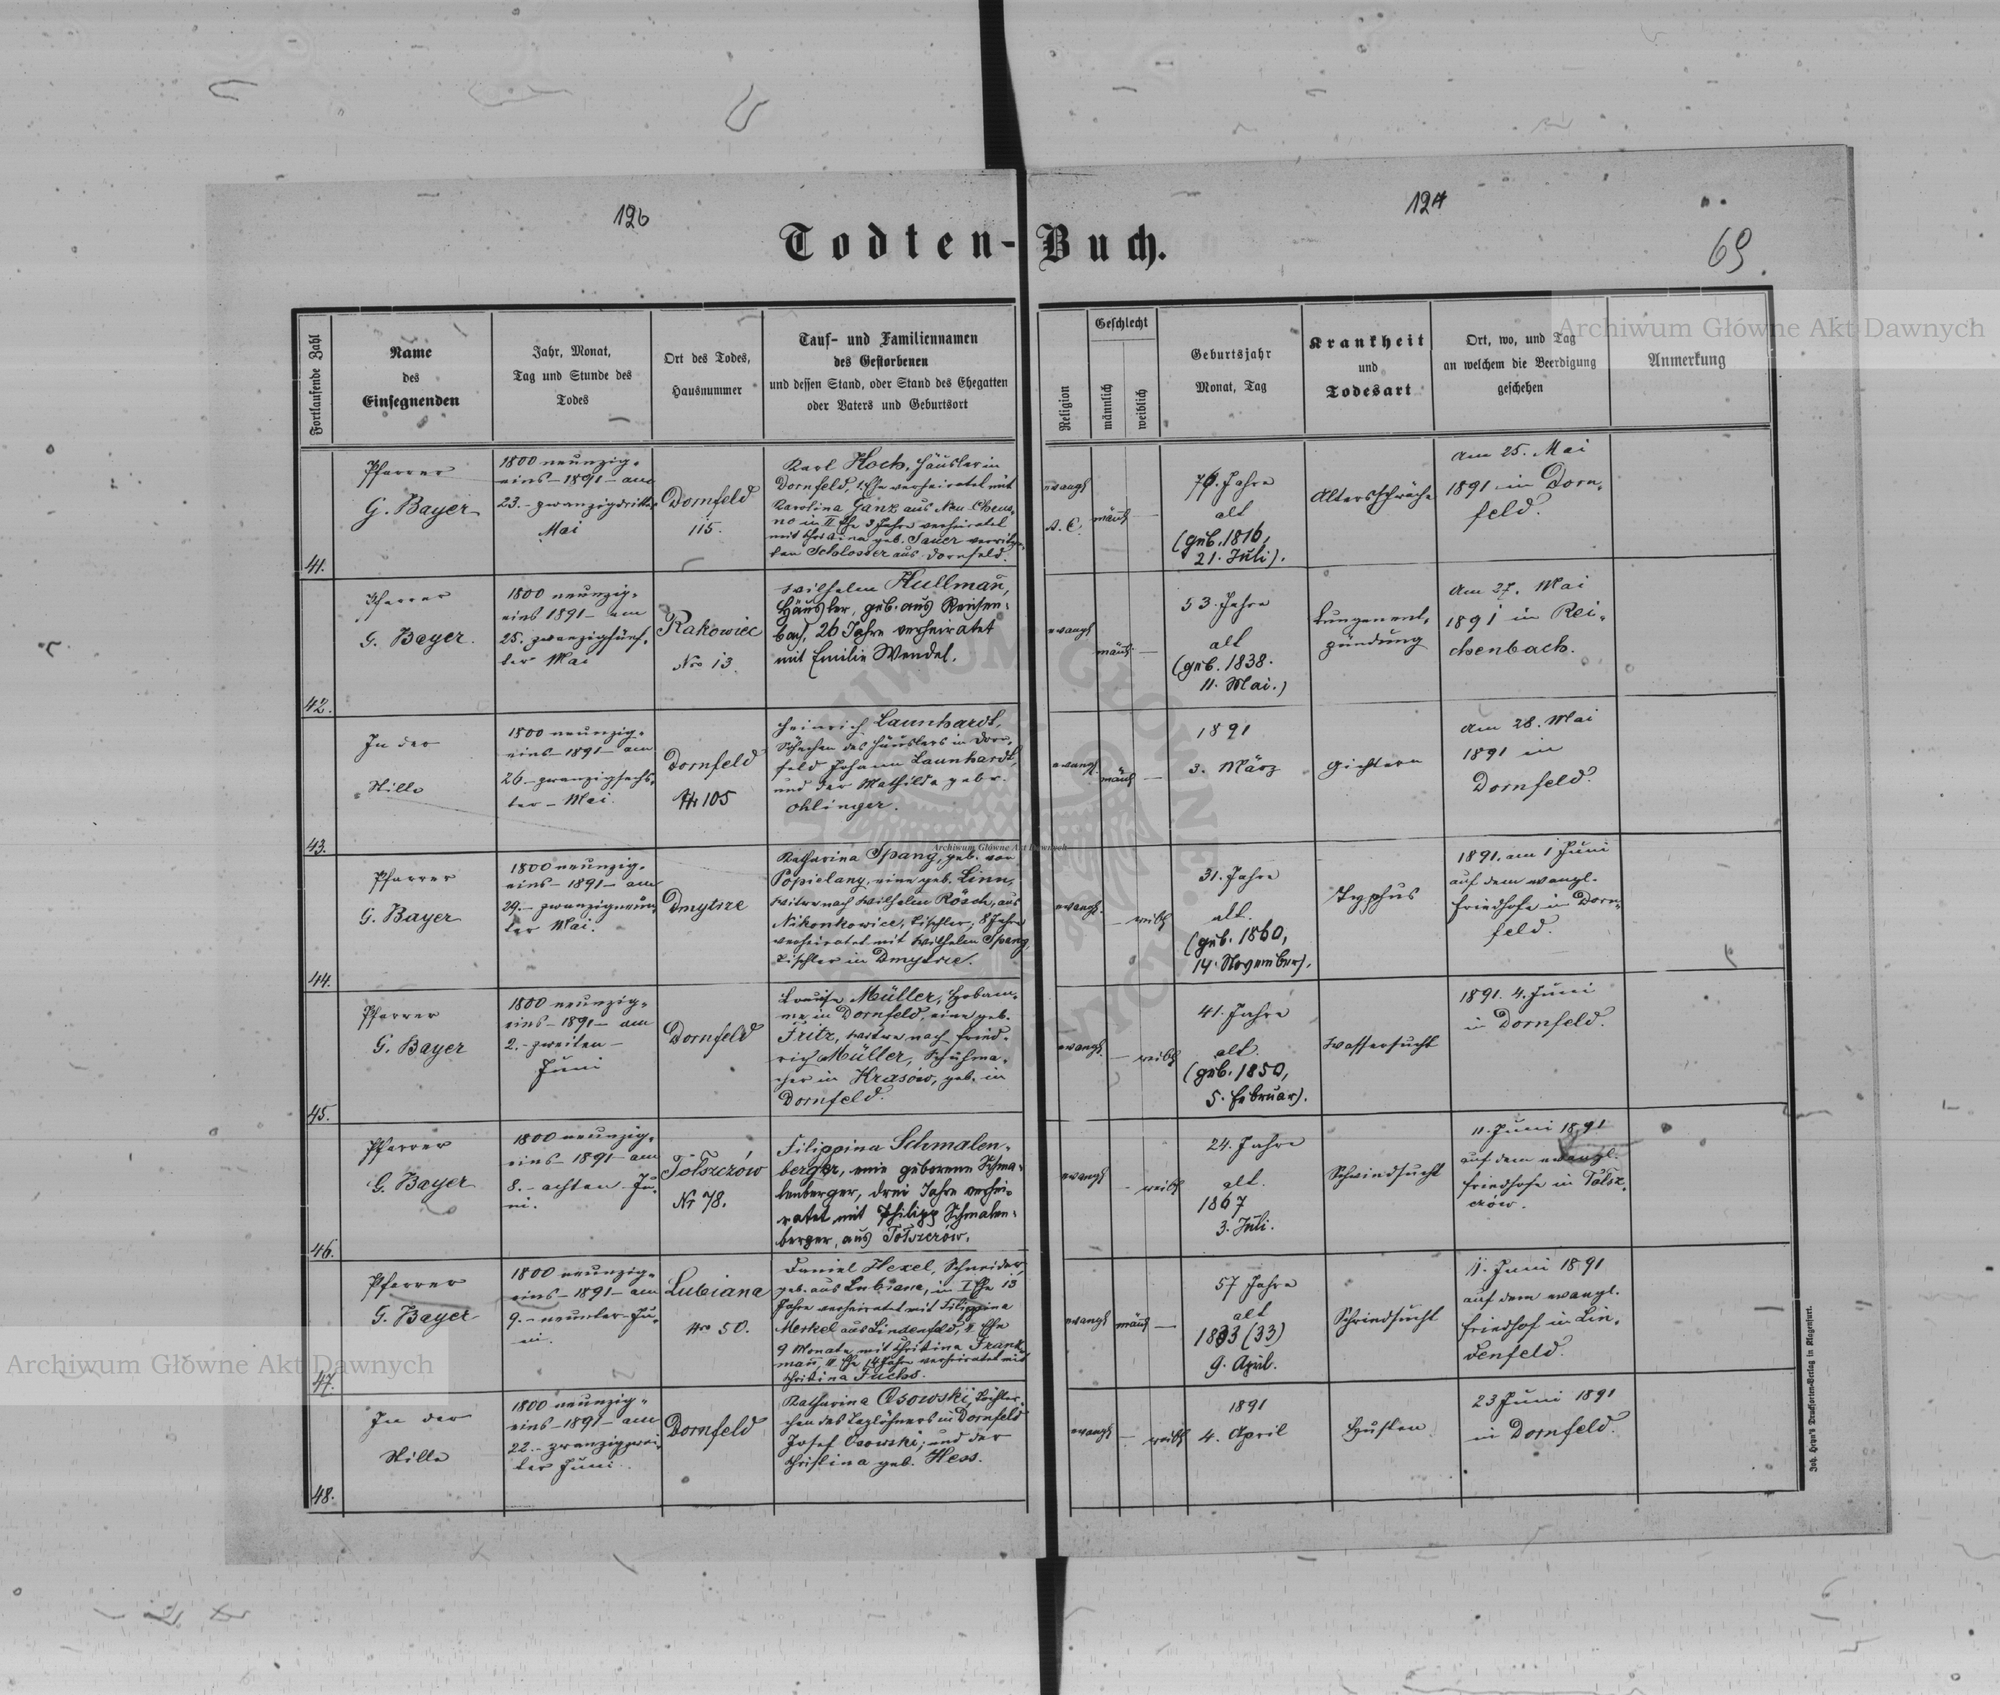 126
124
Todten-Buch.
69.
Archiwum Główne Akt Dawnych
Fortlaufende Zahl
Name
des
Einsegnenden
Jahr, Monat,
Tag und Stunde des
Todes
Ort des Todes,
Hausnummer
Tauf- und Familiennamen
des Gestorbenen
und dessen Stand, oder Stand des Ehegatten
oder Vaters und Geburtsort
Religion
Geschlecht
männlich
weiblich
Geburtsjahr
Monat, Tag
Krankheit
und
Todesart
Ort, wo, und Tag
an welchem die Beerdigung
geschehen
Anmerkung
41.
Pfarrer
G. Bayer
1800 neunzig-
eins - 1891 - am
23. - zwanzigdritten
Mai
Dornfeld
115.
Karl Hoch, Häusler in
Dornfeld, I. Ehe verheiratet mit
Karolina Ganz aus Neu-Chrus-
no in II Ehe 3 Jahre verheiratet
mit Christina geb. Sauer verwitwe-
ten Schlosser aus Dornfeld.
evangl
A. C.
männl
—
76. Jahre
alt
(geb. 1816,
21. Juli).
Altersschwäche
am 25. Mai
1891 in Dorn-
feld.
42.
Pfarrer
G. Bayer.
1800 neunzig-
eins 1891 - am
25. zwanzigfünf-
ter Mai
Rakowiec
Nro 13.
Wilhelm Kullmañ,
Häusler, geb. aus Reichen-
bach, 26 Jahre verheiratet
mit Emilie Wendel.
evangl
männl.
—
53. Jahre
alt
(geb. 1838.
11. Mai.)
Lungenent-
zündung
am 27. Mai
1891 in Rei-
chenbach.
43.
In der
Stille
1800 neunzig-
eins - 1891 - am
26 - zwanzigsechs-
ter - Mai.
Dornfeld
Nr 105
Heinrich Launhardt,
Söhnchen des Häuslers in Dorn-
feld Johann Launhardt,
und der Mathilda gebr.
Ohlinger.
evangl.
männl
—
1891
3. März
Gichtern
am 28. Mai
1891 in
Dornfeld.
44.
Pfarrer
G. Bayer
1800 neunzig-
eins - 1891 - am
29. - zwanzigneun-
ter Mai.
Dmytrze
Katharina Spang, geb. von
Popielany, eine geb. Linn,
Witwe nach Wilhelm Rösch, aus
Nikonkowice, Tischler, 8 Jahre
verheiratet mit Wilhelm Spang
Tischler in Dmytrze.
evangl.
—
weibl
31. Jahre
alt.
(geb. 1860,
14. November).
Typhus
1891. am 1 Juni
auf dem evangl.
Friedhofe in Dorn-
feld.
45.
Pfarrer
G. Bayer
1800 neunzig-
eins - 1891 - am
2. - zweiten -
Juni
Dornfeld
Louise Müller, Hebam-
me in Dornfeld, eine geb.
Fritz, Witwe nach Fried-
rich Müller, Schuhma-
cher in Krasów, geb. in
Dornfeld.
evangl.
—
weibl
41. Jahre
alt.
(geb. 1850,
5. Februar).
Wassersucht
1891. 4. Juni
in Dornfeld.
46.
Pfarrer
G. Bayer
1800 neunzig-
eins - 1891 - am
8. - achten - Ju-
ni.
Tołszczów
Nr 78.
Filippina Schmalen-
berger, eine geborene Schma-
lenberger, drei Jahre verhei-
ratet mit Philipp Schmalen-
berger, aus Tołszczów.
evangl
-
weibl
24. Jahre
alt.
1867
3. Juli.
Schwindsucht
11. Juni 1891
auf dem evangl.
Friedhofe in Tołsz-
czów.
47.
Pfarrer
G. Bayer
1800 neunzig-
eins - 1891 - am
9. - neunter - Ju-
ni.
Lubiana
Nro 50.
Daniel Hexel, Schneider,
geb. aus Lubiana, in I Ehe 13
Jahre verheiratet mit Filippina
Merkel aus Lindenfeld, II Ehe
9 Monate mit Christina Frank-
mañ, III Ehe 14 Jahre verheiratet mit
Christina Fuchs.
evangl
männl
—
57 Jahre
alt
1833 (33)
9. April.
Schwindsucht
11. Juni 1891
auf dem evangl.
Friedhof in Lin-
denfeld.
48.
In der
Stille
1800 neunzig-
eins - 1891 - am
22. - zwanzigzwei-
ter Juni.
Dornfeld
Katharina Osowski, Töchter-
chen des Taglöhners in Dornfeld
Josef Osowski, und der
Christina geb. Hess.
evangl
—
weibl
1891
4. April
Husten
23 Juni 1891
in Dornfeld.
Archiwum Główne Akt Dawnych
Archiwum Główne Akt Dawnych
Joh. Heyn's Drucksorten-Verlag in Klagenfurt.